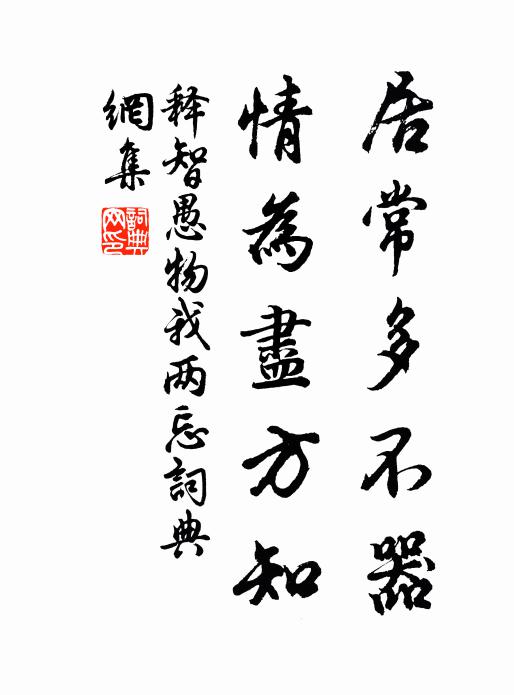 居常多不器
情為盡方知
释智愚物我两忘詞典
網集
詞典
网印